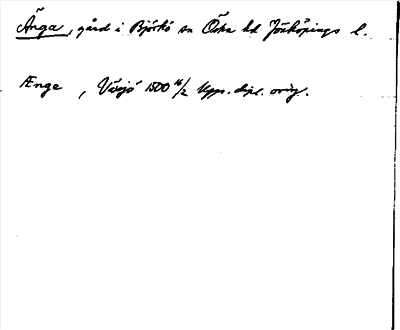 Änga, gård i Björkö sn Östra hd Jönköpings l.
Ænge, Växjö 1500 16/2 Upps. dipl. orig.